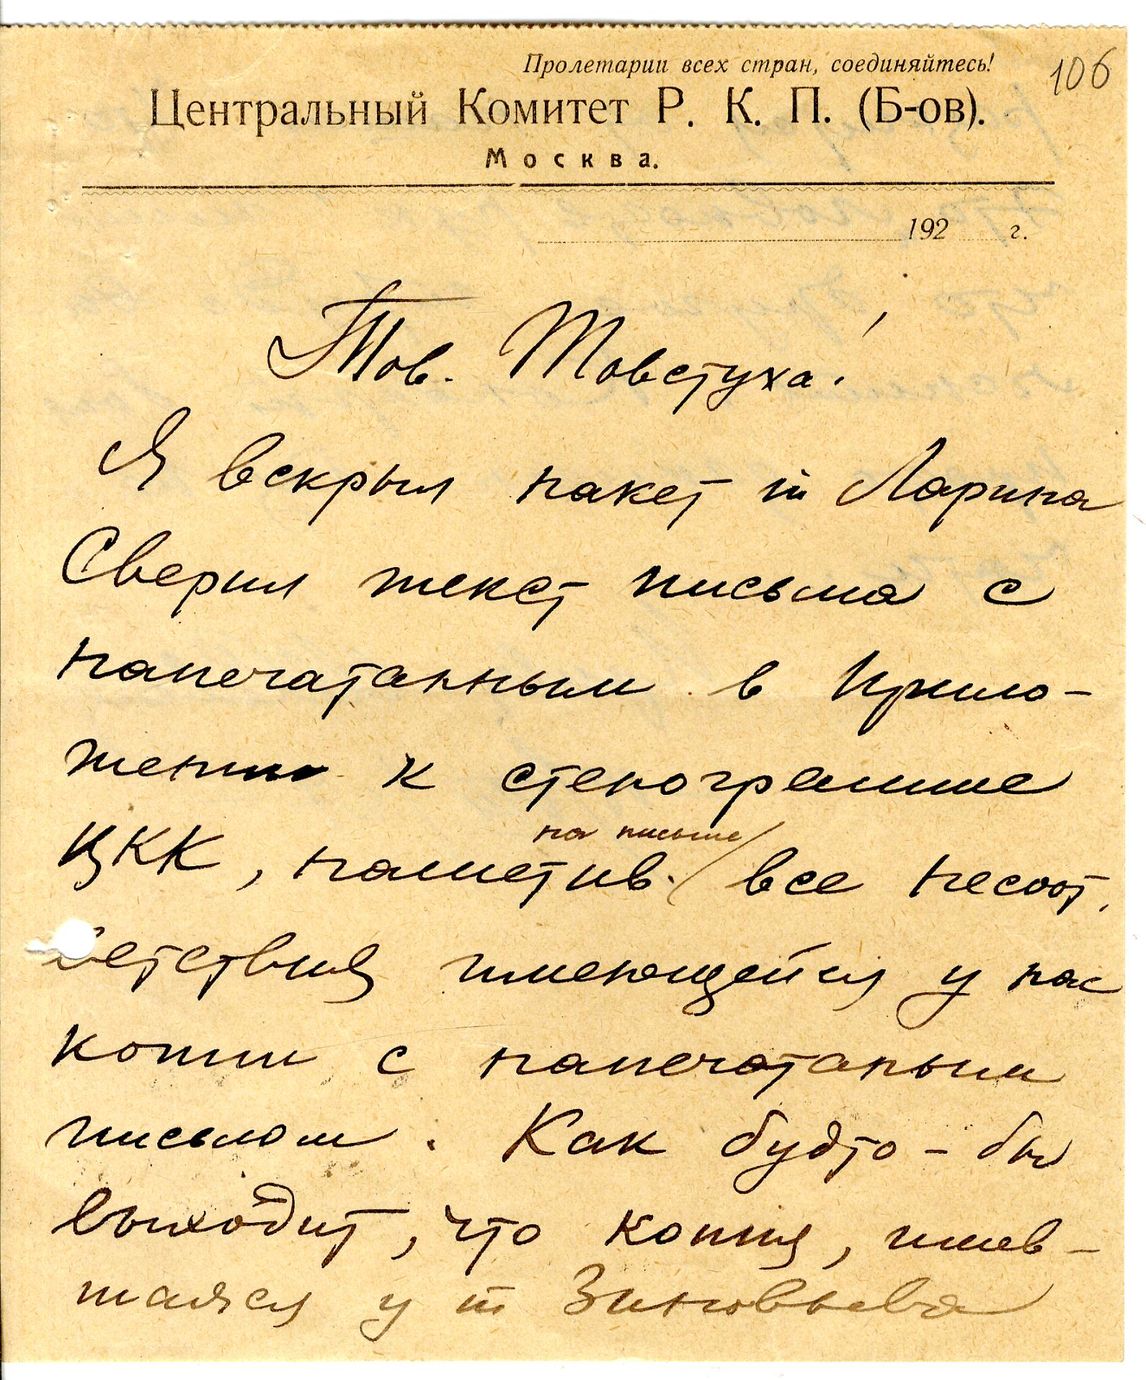 Пролетарии всех стран, соединяйтесь!
106
Центральный Комитет Р. К. П. (Б-ов).
Москва.
192 г.
Тов. Товстуха!
Я вскрыл пакет т Ларина
Сверил текст письма с
напечатанным в Прило-
жении к стенограмме
ЦКК, наметив на письме все несоот.
ветствия имеющейся у нас
копии с напечатаным
письмом. Как будто-бы
выходит, что копия, имев-
шаяся у т Зиновьева